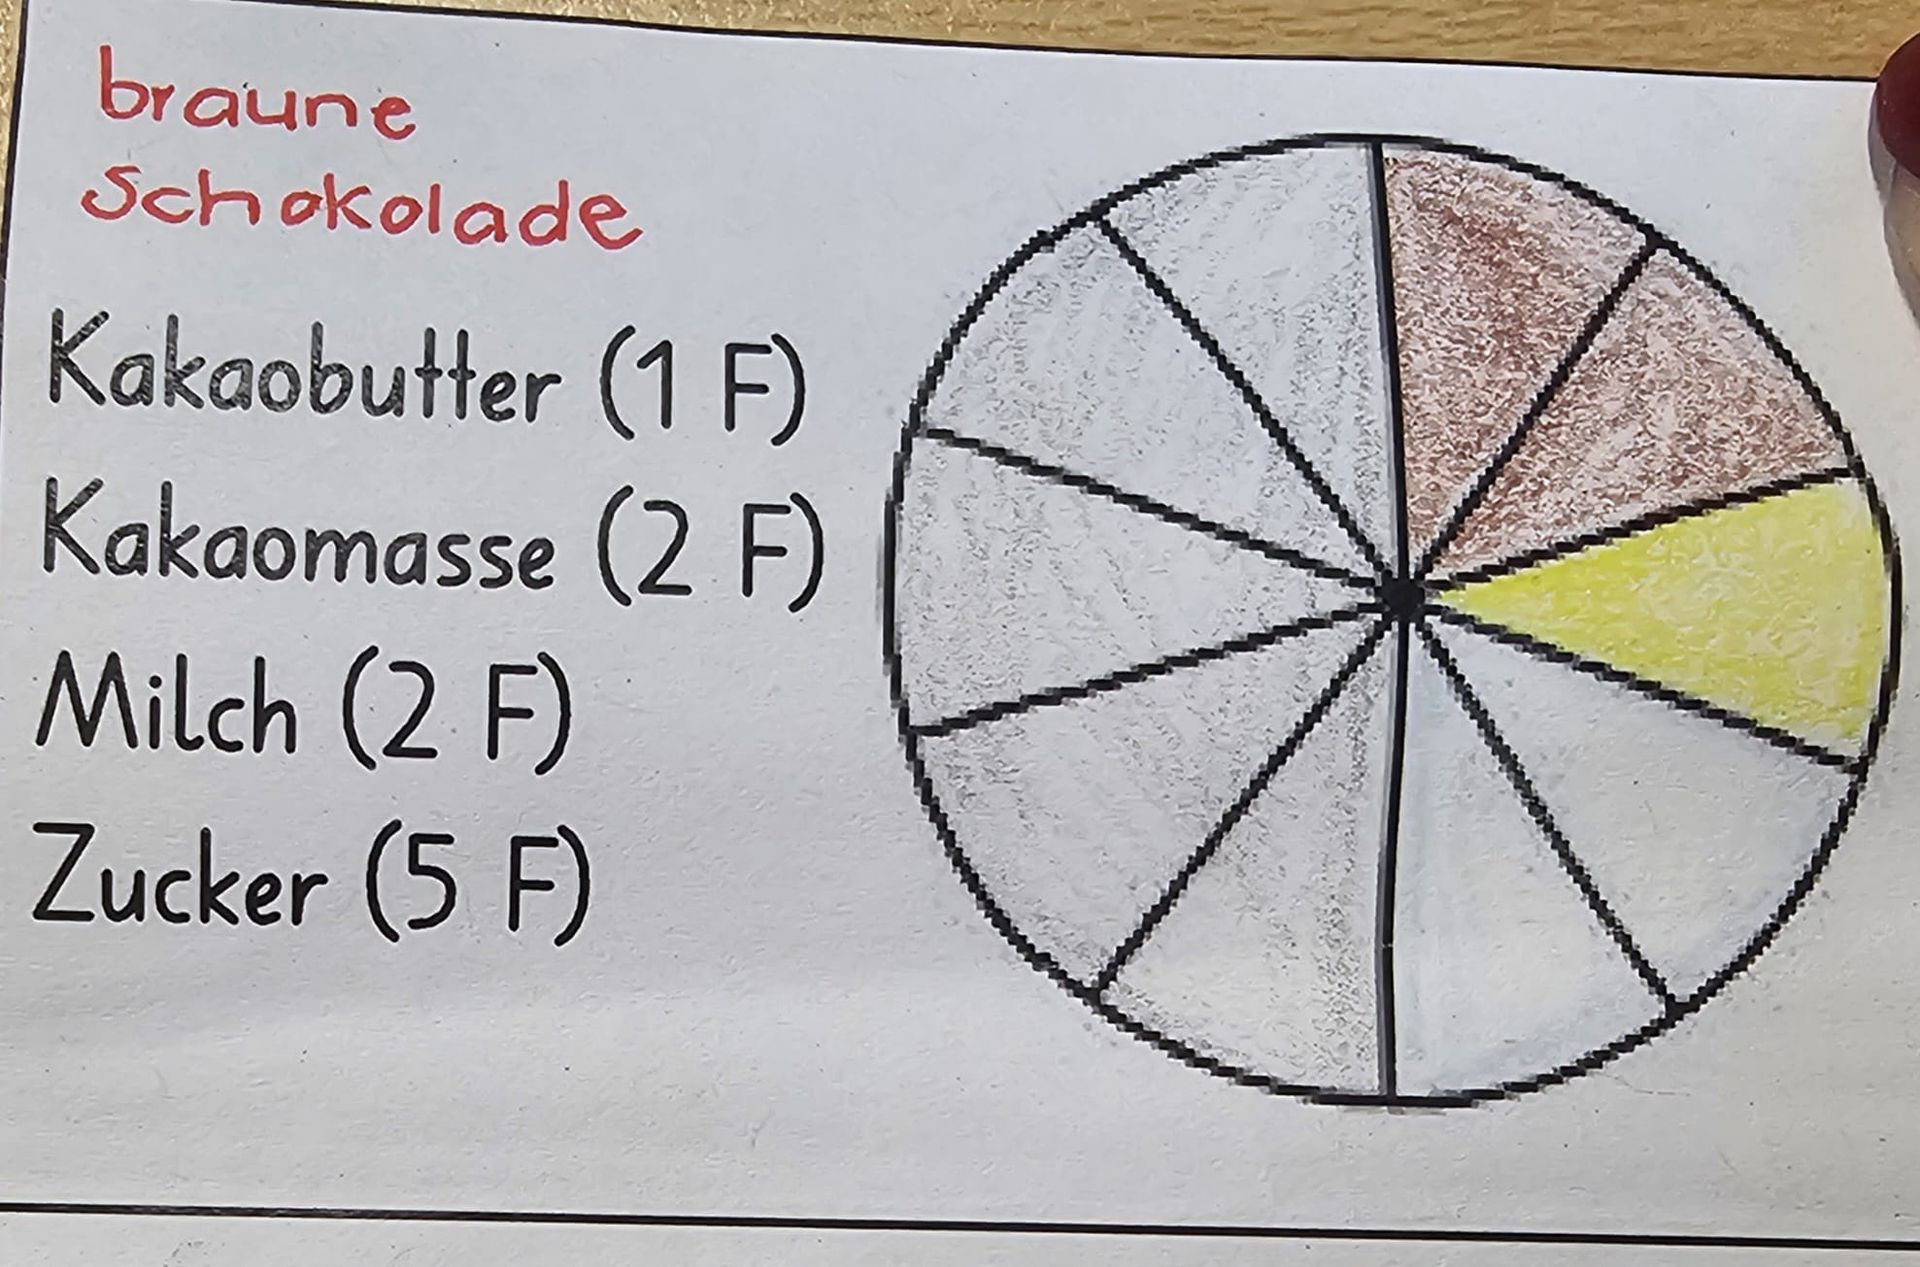 braune
Schokolade
Kakaobutter (1 F)
Kakaomasse (2 F)
Milch (2 F)
Zucker (5 F)